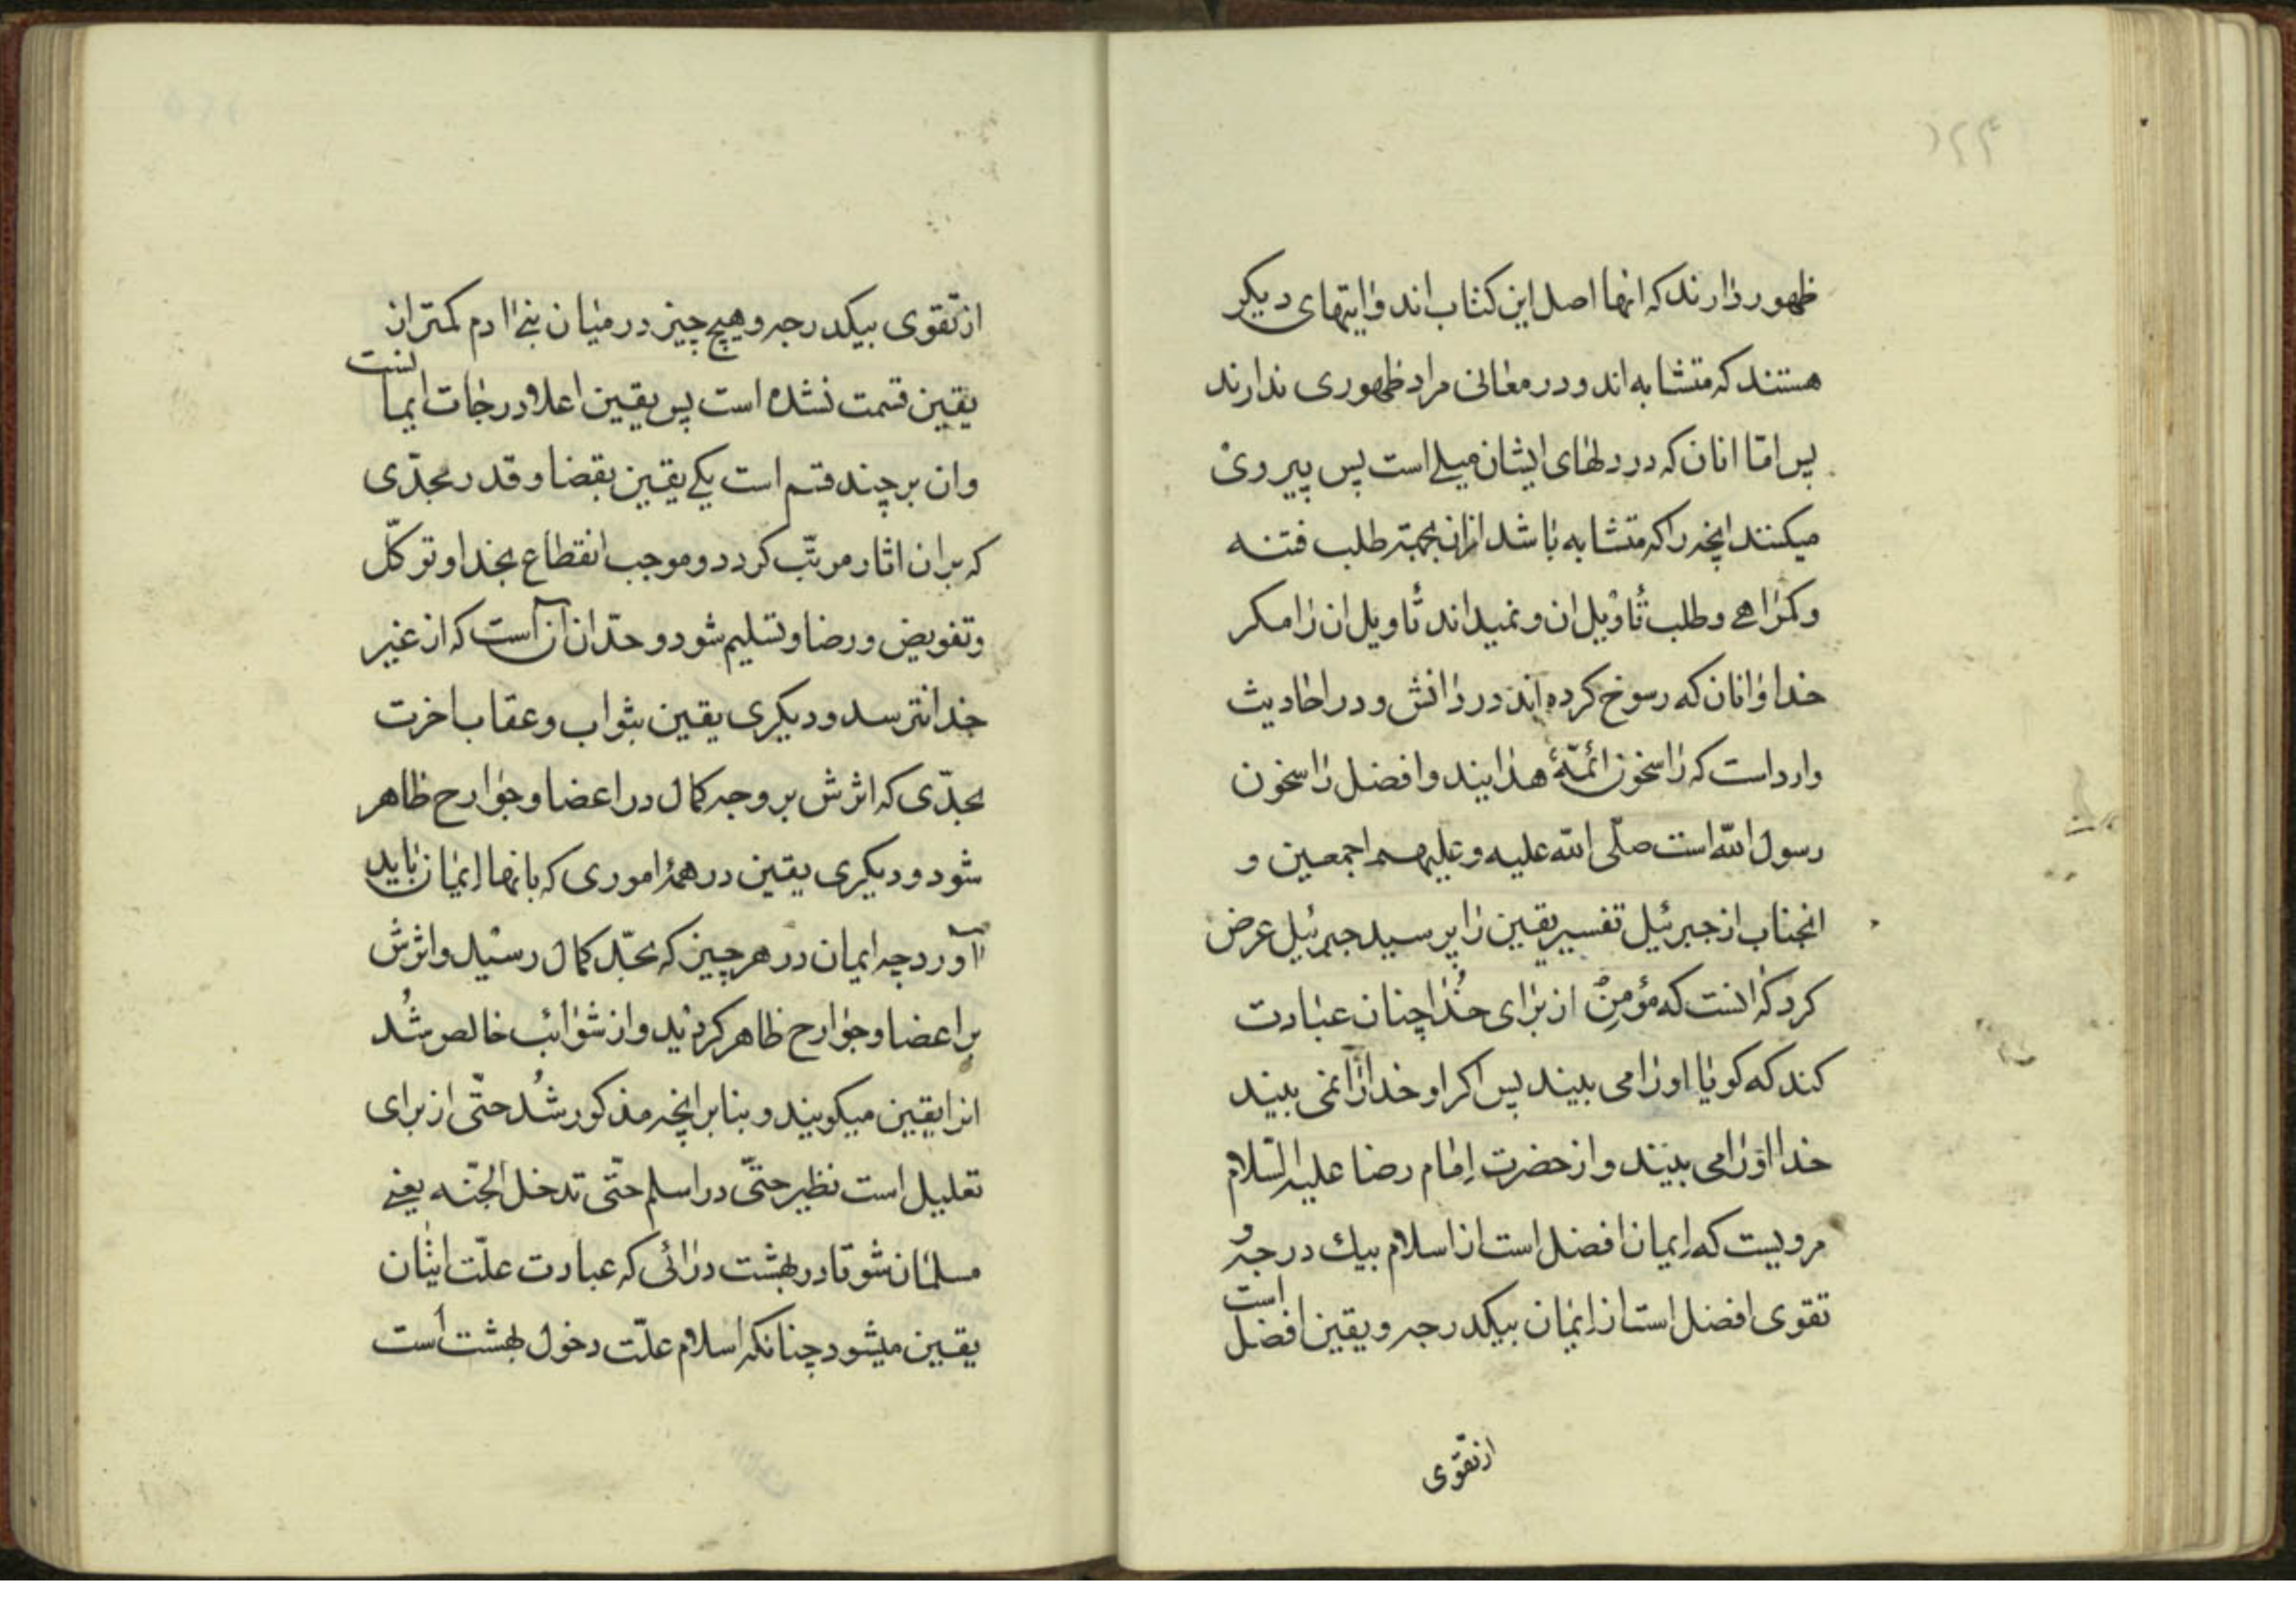 ظهور دارند که انها اصل این کتاب اند و ایتهای دیکر
هستند که متشابه اند و در معانی مراد ظهوری ندارند
پس امّا انان که در دلهای ایشان میلی است پس پیروی
میکنند انچه را که متشابه باشد ازان بجهة طلب فتنه
و کمراهی و طلب تأویل ان و نمیداند تأویل ان را مکر
خدا و انان که رسوخ کرده اند در دانش و در احادیث
وارد است که راسخون ائمّهٔ هدایند و افضل راسخون
رسول الله است صلّی الله علیه و علیهم اجمعین و
انجناب از جبرئیل تفسیر یقین را پرسید جبرئیل عرض
کرد که انست که مؤمن از برای خُدا چنان عبادت
کند که کویا او را می بیند پس اکر او خدا را نمی بیند
خدا او را می بیند و از حضرت امام رضا علیه السّلام
مرویست که ایمان افضل است از اسلام بیك درجه و
تقوی افضل است از ایمان بیکدرجه و یقین افضل است
از تقوی
از تقوی بیکدرجه و هیچ چیز در میان بنی ادم کمتر از
یقین قسمت نشده است پس یقین اعلا درجات ایمانست
و ان بر چند قسم است یکی یقین بقضا و قدر بحدّی
که بر ان اثار مرتّب کردد و موجب انقطاع بخدا و توکّل
و تفویض و رضا و تسلیم شود و حدّ ان آن است که از غیر
خدا نترسد و دیکری یقین بثواب و عقاب اخرت
بحدّی که اثرش بر وجه کمال در اعضا و جوارح ظاهر
شود و دیکری یقین در همهٔ اموری که بانها ایمان باید
آورد چه ایمان در هر چیز که بحدّ کمال رسید و اثرش
بر اعضا و جوارح ظاهر کردید و از شوائب خالص شُد
انرا یقین میکویند و بنا بر انچه مذکور شُد حتّی از برای
تعلیل است نظیر حتّی در اسلم حتّی تدخل الجنّه یعنی
مسلمان شو تا در بهشت در ائی که عبادت علّت اتیان
یقین میشود چنانکه اسلام علّت دخول بهشت است